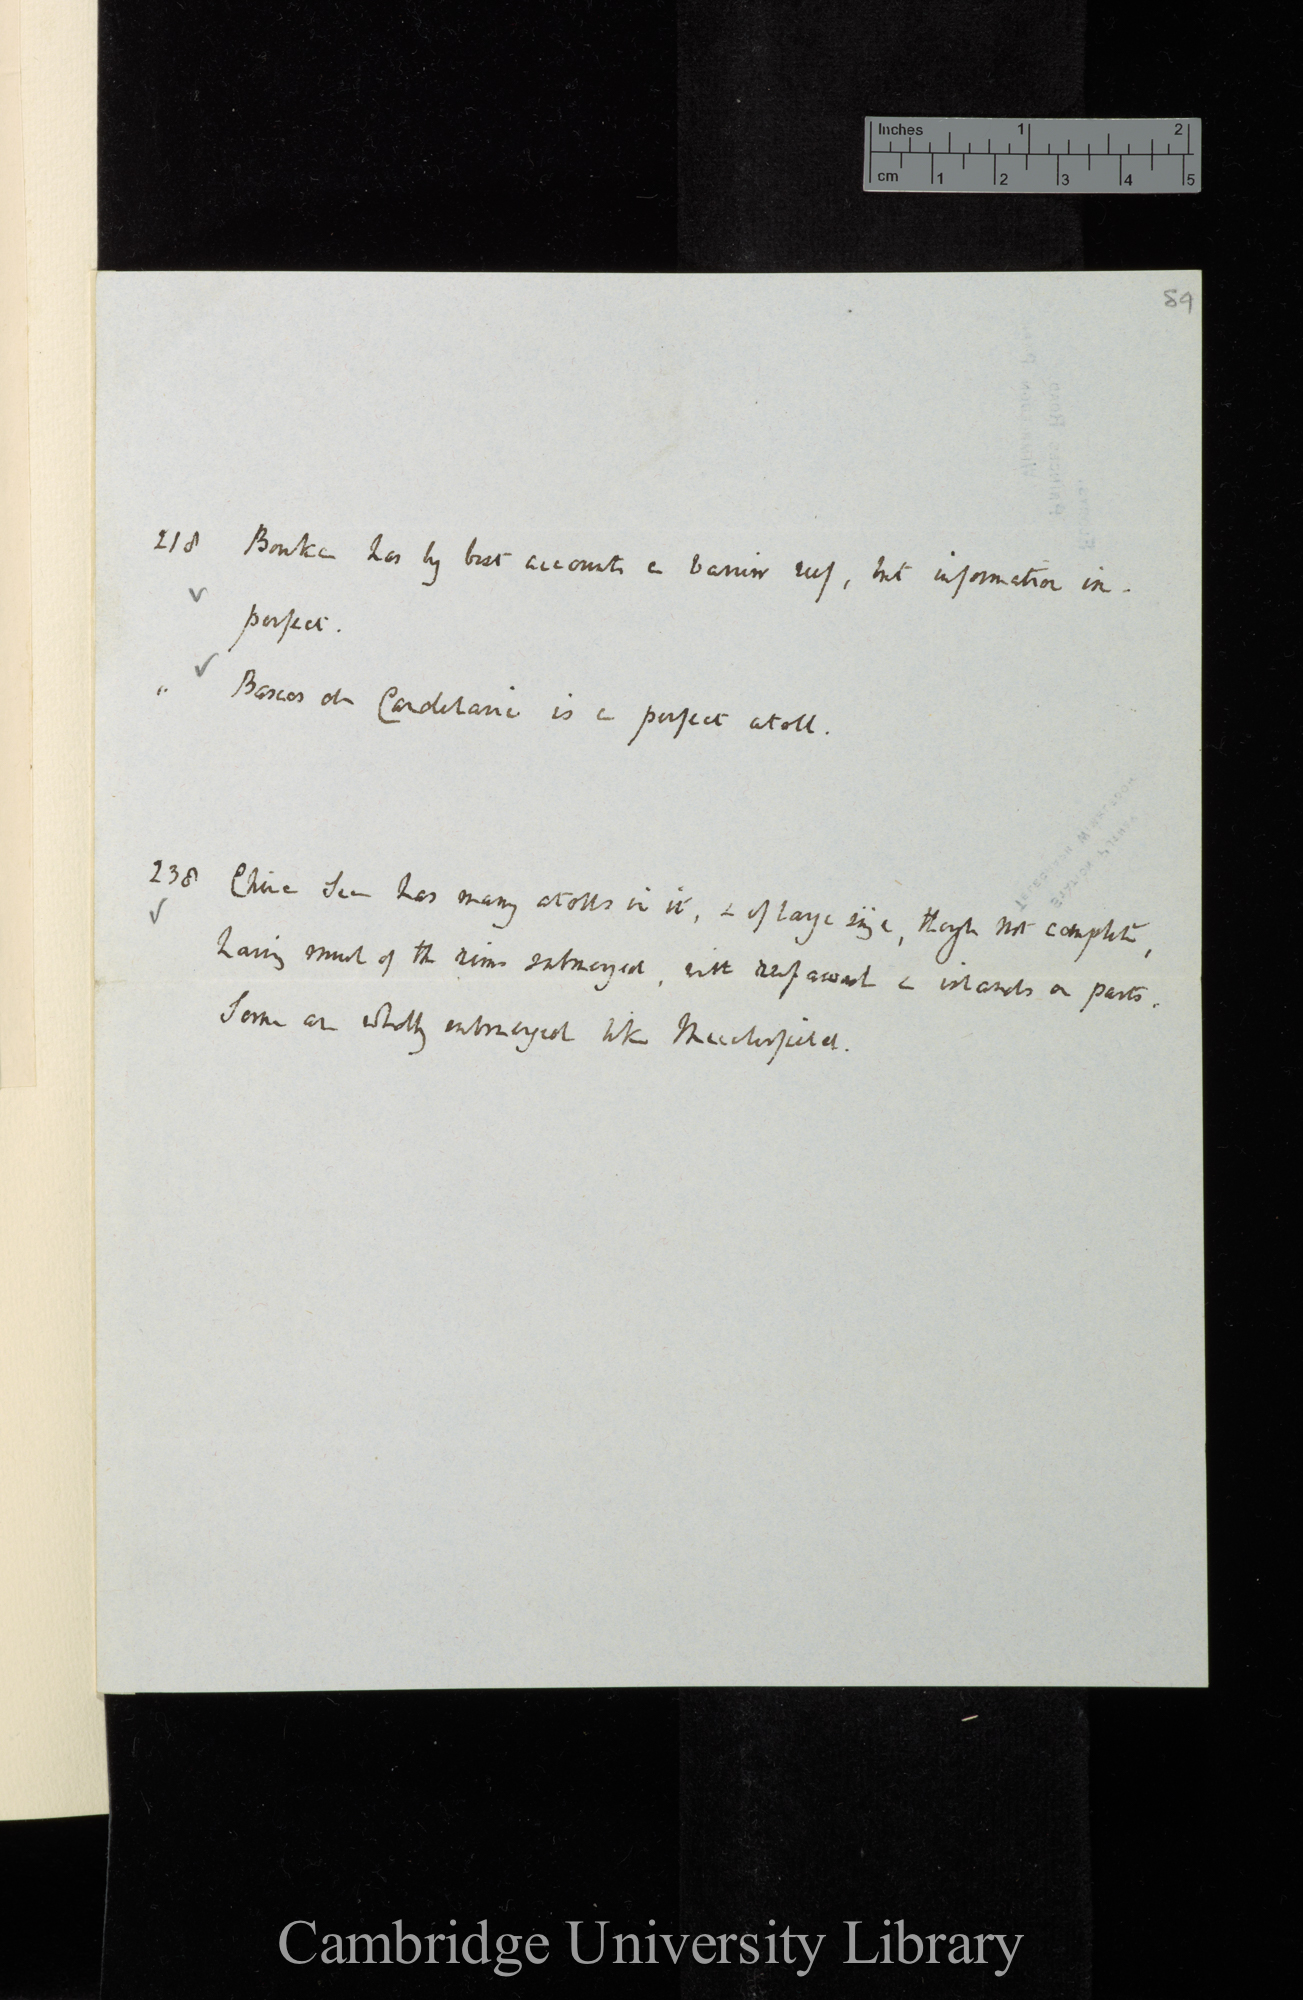 Inches 1 2
cm 1 2 3 4 5
84
218 Bouka has by best accounts a barrier reef, but information im-
perfect.
" Bascos de Candelaria is a perfect atoll.
238 China Sea has many atolls in it, & of large size, though not complete,
having much of the rims submerged, with reef awash & islands on parts.
Some are wholly submerged like Macclesfield.
Cambridge University Library